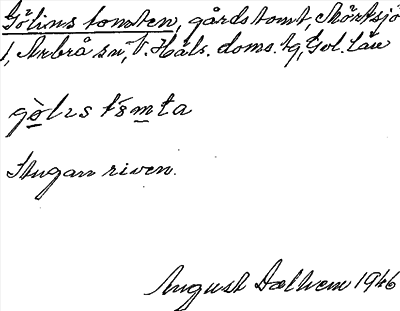 Gölins tomten, gårdstomt, Mörtsjö
1, Arbrå sn, V. Häls. doms. tg, Gvl. län
gò̱lɪs tˈsm̱ta
Stugan riven.
August Dælhem 1946